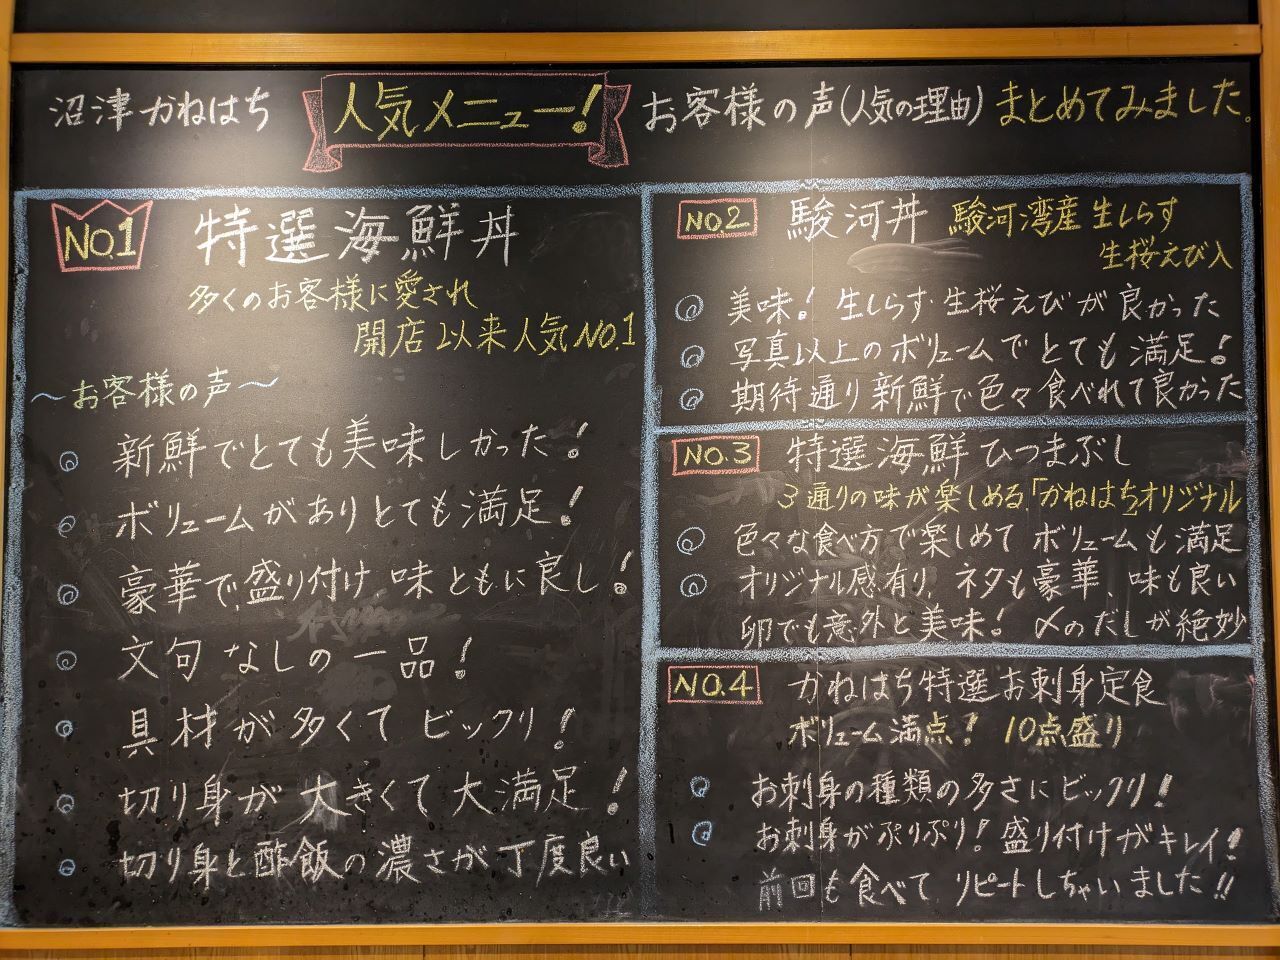 沼津かねはち 人気メニュー! お客様の声(人気の理由)まとめてみました。
NO.1 特選海鮮丼
多くのお客様に愛され
開店以来人気NO.1
～お客様の声～
新鮮でとても美味しかった!
ボリュームがありとても満足!
豪華で盛り付け、味ともに良し!
文句なしの一品!
具材が多くてビックリ!
切り身が大きくて大満足!
切り身と酢飯の濃さが丁度良い
NO.2 駿河丼 駿河湾産生しらす
生桜えび入
美味!生しらす・生桜えびが良かった
写真以上のボリュームでとても満足!
期待通り新鮮で色々食べれて良かった
NO.3 特選海鮮ひつまぶし
3通りの味が楽しめる「かねはち」オリジナル
色々な食べ方で楽しめてボリュームも満足
オリジナル感有り、ネタも豪華、味も良い
卵でも意外と美味!〆のだしが絶妙
NO.4 かねはち特選お刺身定食
ボリューム満点!10点盛り
お刺身の種類の多さにビックリ!
お刺身がぷりぷり!盛り付けがキレイ!
前回も食べてリピートしちゃいました!!